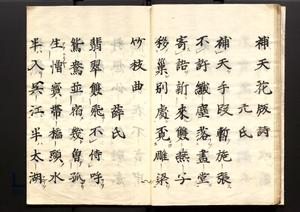 補天花版詩
元氏
補天手段暫施張
不許纖塵落畫堂
寄語新來雙燕子
移巢別處覓雕梁
竹枝曲
薛氏
翡翠雙飛不待呼
鴛鴦並宿幾曾孤
生憎寶帶橋頭水
半入吳江半太湖